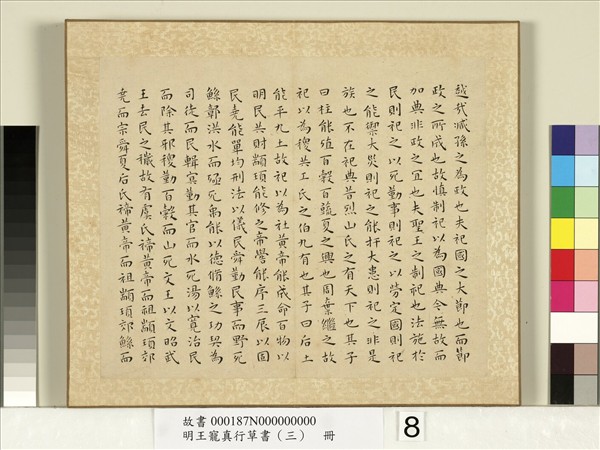 越哉臧孫之為政也夫祀國之大節也而節
政之所成也故慎制祀以為國典今無故而
加典非政之宜也夫聖王之制祀也法施於
民則祀之以死勤事則祀之以勞定國則祀
之能禦大災則祀之能扞大患則祀之非是
族也不在祀典昔烈山氏之有天下也其子
曰柱能殖百穀百蔬夏之興也周棄繼之故
祀以為稷共工氏之伯九有也其子曰后土
能平九土故祀以為社黃帝能成命百物以
明民共財顓頊能修之帝嚳能序三辰以固
民堯能單均刑法以儀民舜勤民事而野死
鯀鄣洪水而殛死禹能以德脩鯀之功契為
司徒而民輯冥勤其官而水死湯以寬治民
而除其邪稷勤百穀而山死文王以文昭武
王去民之穢故有虞氏禘黃帝而祖顓頊郊
堯而宗舜夏后氏禘黃帝而祖顓頊郊鯀而
故書 000187N000000000
明王寵真行草書（三） 冊
8